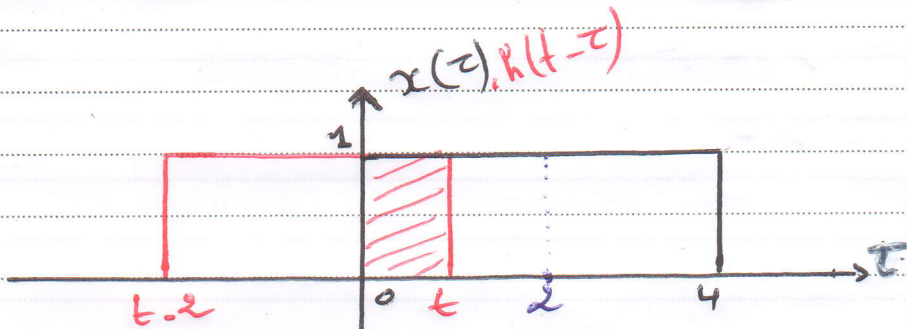 x(τ).h(t-τ)
1
τ
t-2 0 t 2 4